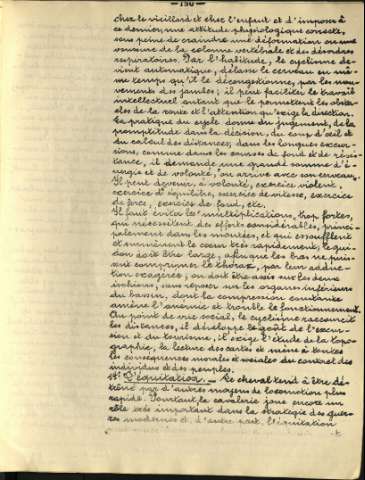 — 190 —
chez le vieillard et chez l'enfant et d'imposer à
ce dernier, une attitude physiologique correcte,
sous peine de craindre une déformation ou une
de la colonne vertébrale et des désordres
respiratoires. Par l'habitude, le cyclisme de-
vient automatique, délasse le cerveau en mê-
me temps qu'il le décongestionne, par les mou-
vements des jambes ; il peut faciliter le travail
intellectuel autant que le permettent les obsta-
cles de la route et l'attention qu'exige la direction.
La pratique du cycle donne du jugement, de la
promptitude dans la décision, du coup d'œil et
du calcul des distances, dans les longues excur-
sions, comme dans les courses de fond et de résis-
tance, il demande une grande somme d'é-
nergie et de volonté,
Il peut devenir, à volonté, exercice violent,
exercice d'équilibre, exercice de vitesse, exercice
de force, exercice de fond, etc.
Il faut éviter les multiplications, trop fortes,
qui nécessitent des efforts considérables, princi-
palement dans les montées, et qui essoufflent
et surmènent le cœur très rapidement, le gui-
don doit être large, afin que les bras ne puis-
sent comprimer le thorax, par leur adduc-
tion exagérée ; on doit être assis sur les deux
ischions, sans reposer sur les organes inférieurs
du bassin, dont la compression constante
amène l'anémie et trouble le fonctionnement.
Au point de vue social, le cyclisme raccourcit
les distances, il développe le goût de l'excur-
sion et du tourisme, il exige l'étude de la topo-
graphie, la lecture des cartes et mène à toutes
les conséquences morales et sociales du contact des
individus et des peuples.
L'équitation. — Le cheval tend à être dé-
trôné par d'autres moyens de locomotion plus
rapide. Pourtant, la cavalerie joue encore un
rôle très important dans la stratégie des guer-
res modernes et, d'autre part, l'équitation